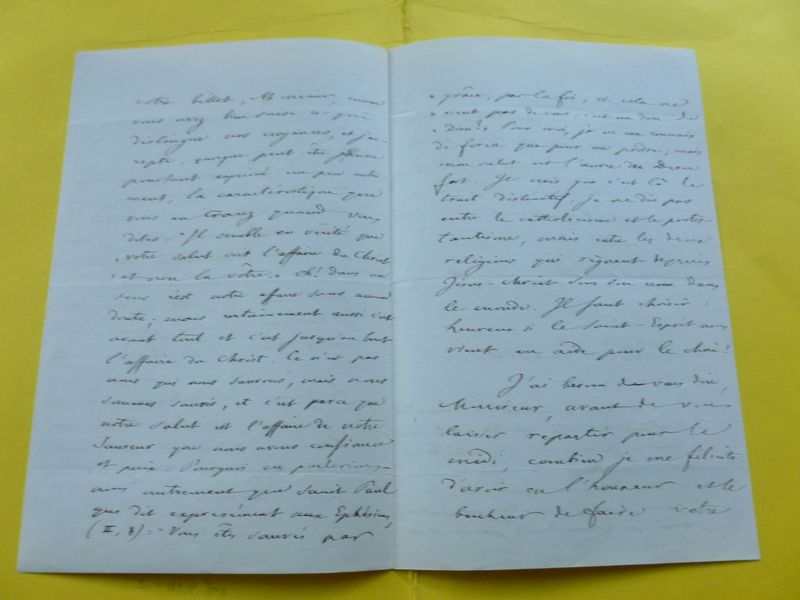 votre billet, Monsieur, comme
vous avez bien saisi ce qui
distingue nos croyances, et j'ac-
cepte, quoique peut être j'eusse
pourtant exprimé un peu autre-
ment, la caractéristique que
vous en tracez quand vous
dites: "Il semble en vérité que
"votre salut soit l'affaire du Christ
"et non la vôtre." Oh! dans un
sens c'est notre affaire sans aucun
doute, mais certainement aussi c'est
avant tout et c'est jusqu'au bout
l'affaire du Christ. Ce n'est pas
nous qui nous sauvons, mais nous
sommes sauvés, et c'est parce que
notre salut est l'affaire de notre
Sauveur que nous avons confiance
et paix. Pourquoi en parlerions-
nous autrement que Saint Paul
qui dit expressément aux Ephésiens,
(II, 8): "Vous êtes sauvés par
"grâce, par la foi, et cela ne
"vient pas de vous, c'est un don de
"Dieu"? Pour moi, je ne me connais
de force que pour me perdre; mais
mon salut est l'œuvre du Dieu
fort. Je crois que c'est là le
trait distinctif, je ne dis pas
entre le catholicisme et le protes-
tantisme, mais entre les deux
religions qui règnent depuis
Jésus-Christ sous son nom dans
le monde. Il faut choisir:
heureux si le Saint-Esprit nous
vient en aide pour le choix!
J'ai besoin de vous dire,
Monsieur, avant de vous
laisser repartir pour le
midi, combien je me félicite
d'avoir eu l'honneur et le
bonheur de faire votre